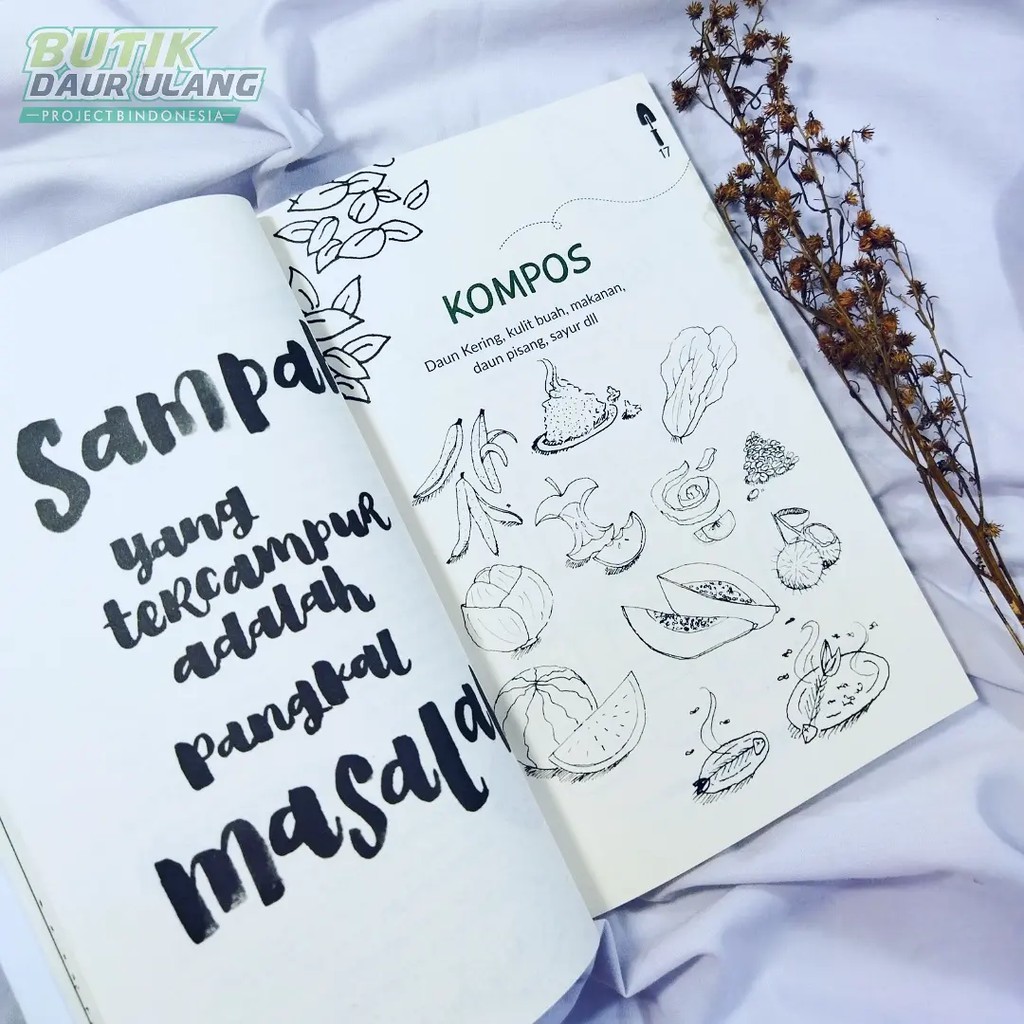 BUTIK
DAUR ULANG
PROJECTBINDONESIA
17
KOMPOS
Daun Kering, kulit buah, makanan,
daun pisang, sayur dll
Sampah
yang
tercampur
adalah
pangkal
masalah